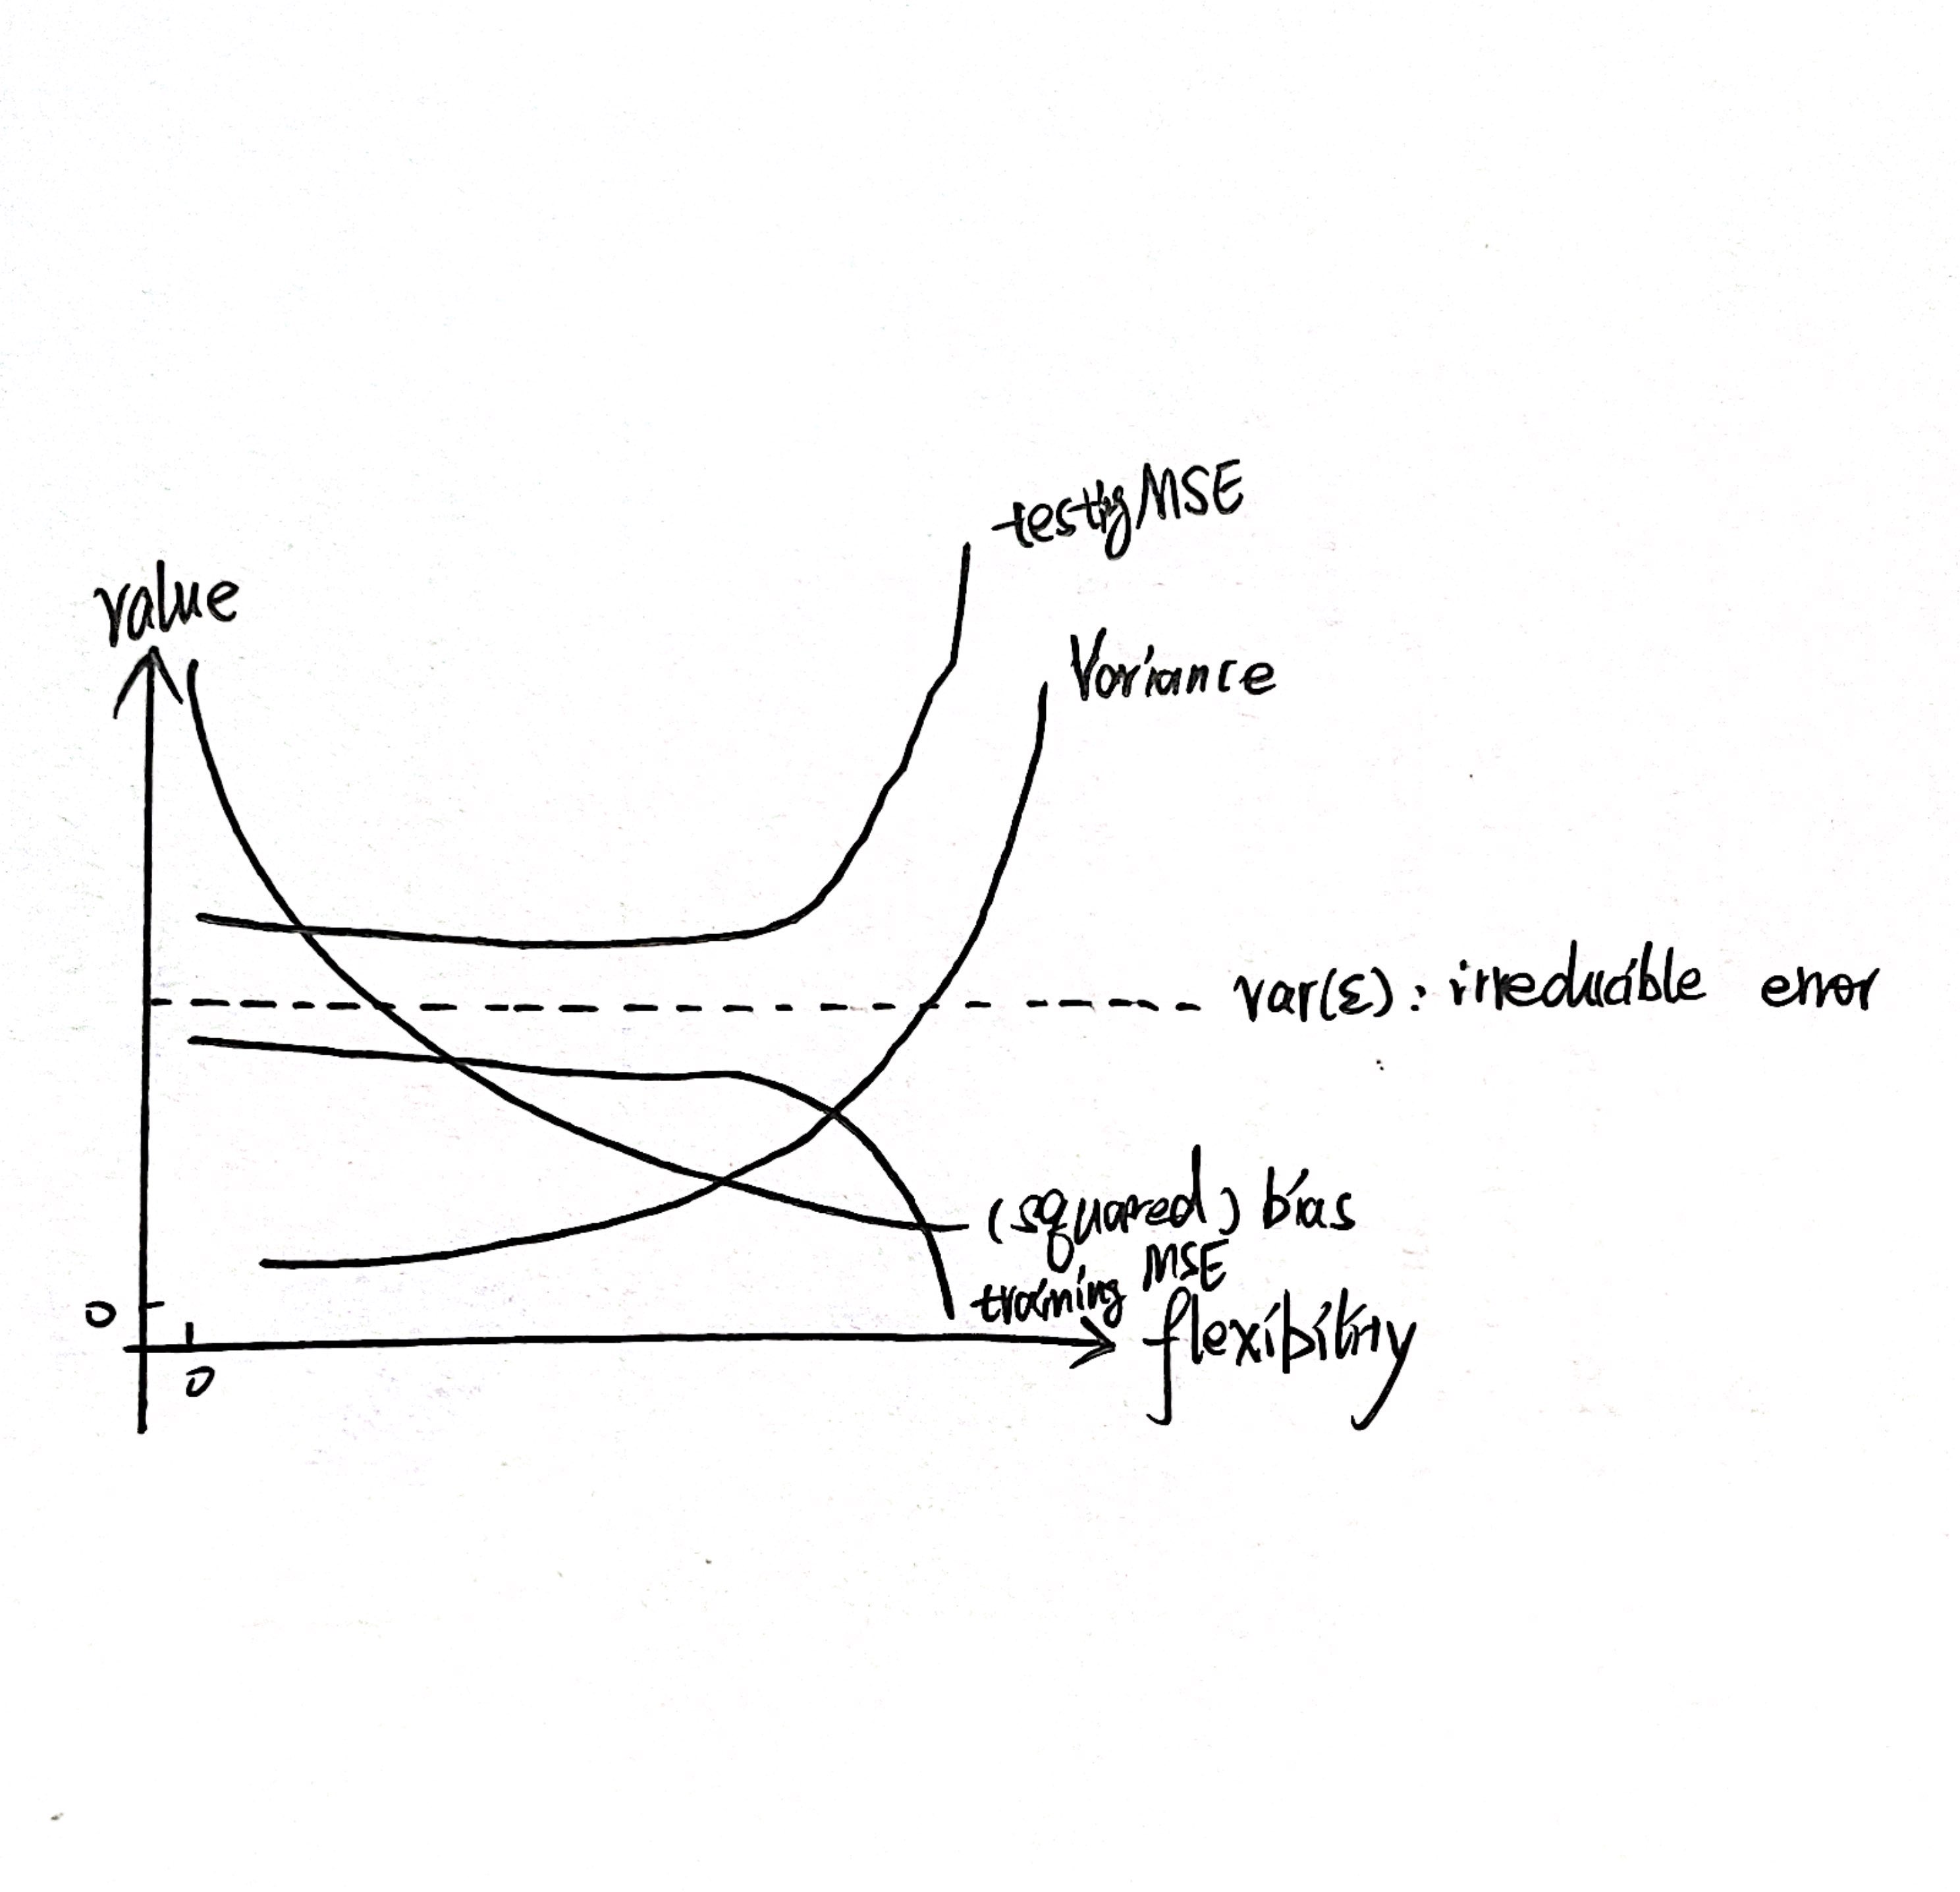 testing MSE
value
Variance
var(ε): irreducible error
(squared) bias
training MSE
flexibility
0
0